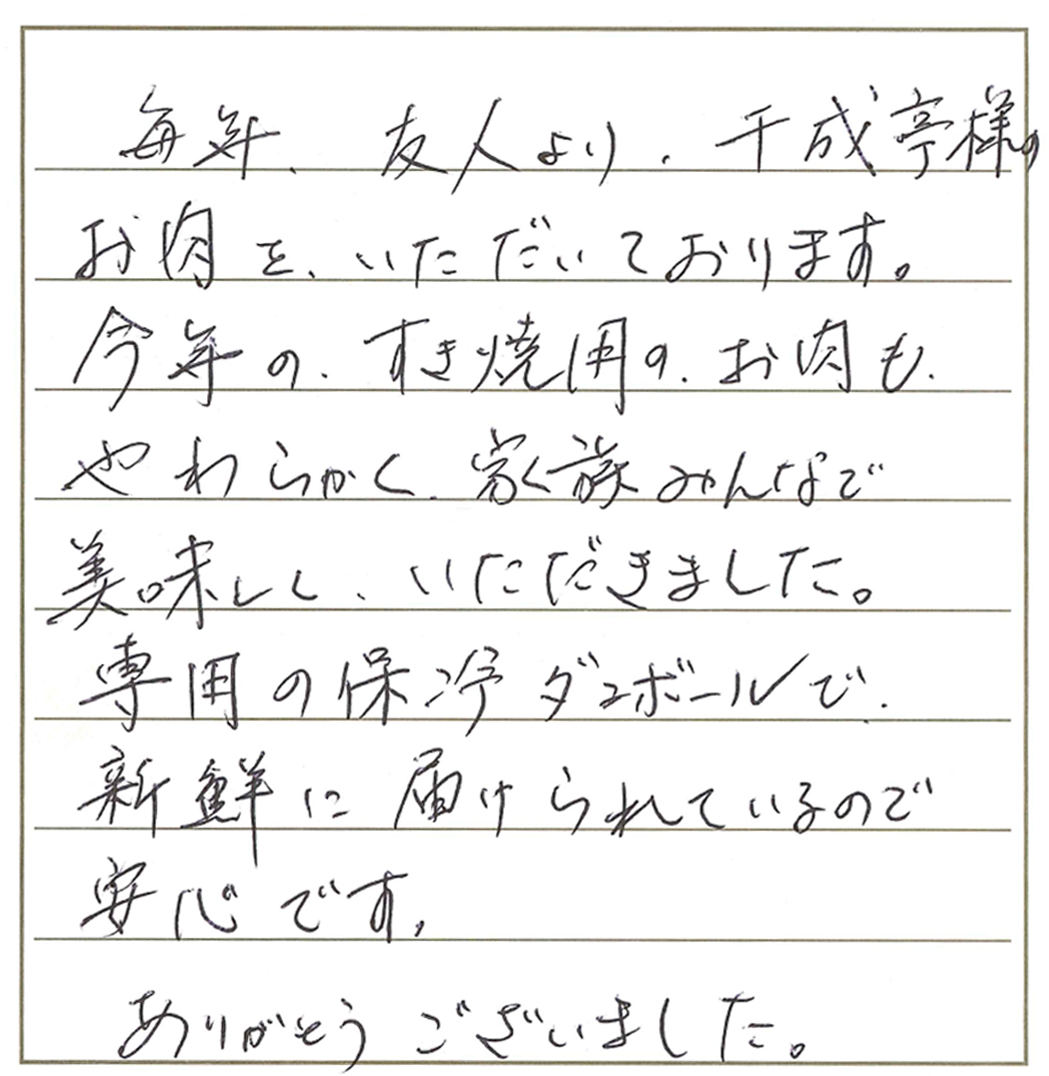 毎年、友人より、千成亭様の
お肉を、いただいております。
今年の、すき焼用の、お肉も、
やわらかく、家族みんなで
美味しく、いただきました。
専用の保冷ダンボールで、
新鮮に届けられているので
安心です。
ありがとうございました。